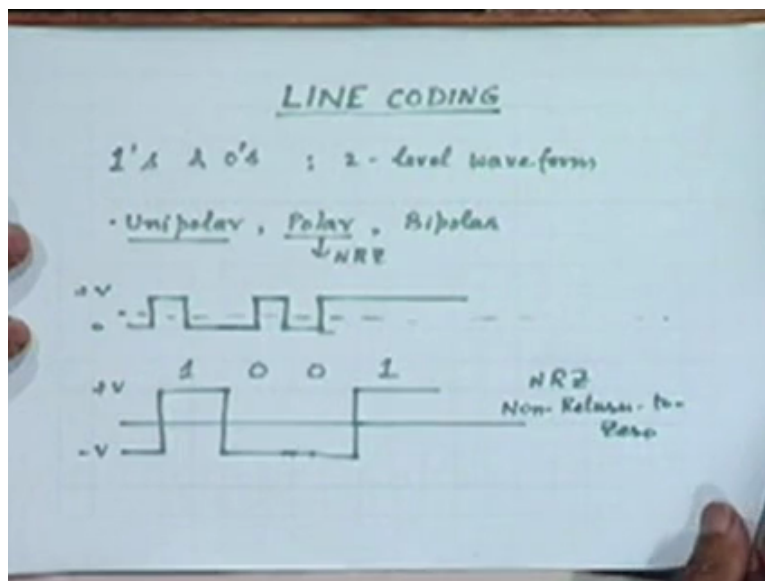 LINE CODING
1's & 0's : 2-level waveform
· Unipolar, Polar, Bipolar
↓ NRZ
+V
0
1 0 0 1
+V
-V
NRZ
Non-Return-to-
Zero